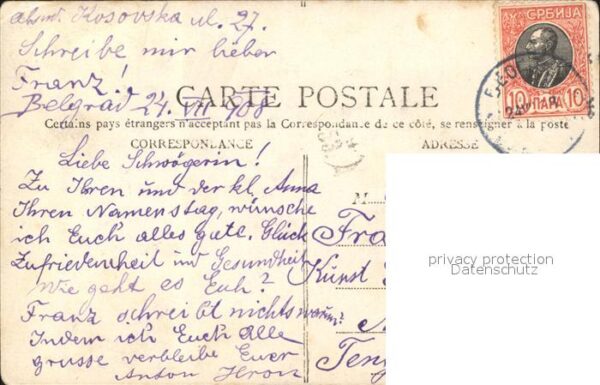 Kosovska ul. 27.
Schreibe mir lieber
Franz!
Belgrad 24 VII 908
СРБИЈА
10 ПАРА 10
CARTE POSTALE
Certains pays étrangers n'acceptant pas la Correspondance de ce côté, se renseigner à la poste
CORRESPONDANCE
ADRESSE
Liebe Schwägerin!
Zu Ihren und der kl. Anna
Ihren Namenstag, wünsche
ich Euch alles gute. Glück
Zufriedenheit und Gesundheit
Wie geht es Euch?
Franz schreibt nichts warum?
Indem ich Euch alle
grüsse verbleibe Euer
Anton Hron
M
Fra
Kunst
Ten
privacy protection
Datenschutz